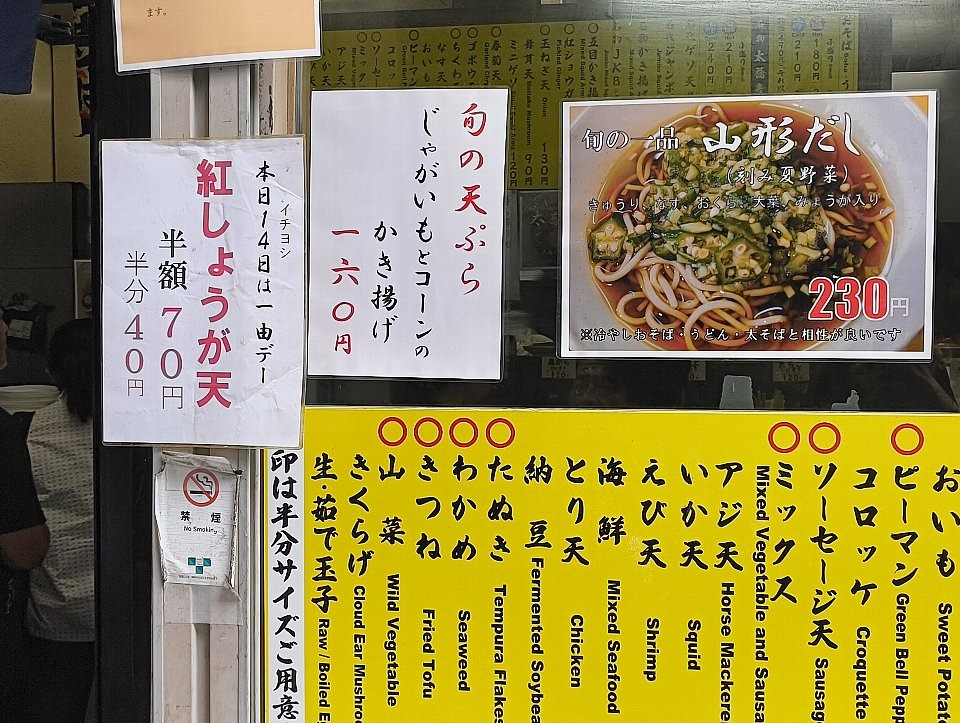 ます。
本日14日は一由デー
イチヨシ
紅しょうが天
半額 70円
半分 40円
旬の天ぷら
じゃがいもとコーンの
かき揚げ
一六〇円
旬の一品 山形だし
(刻み夏野菜)
きゅうり、なす、おくら、大葉、みょうが入り
230円
※冷やしおそば・うどん・太そばと相性が良いです
禁煙
No Smoking
おいも Sweet Potato
○ ピーマン Green Bell Pepp
コロッケ Croquette
○ ソーセージ天 Sausag
○ ミックス Mixed Vegetable and Sausa
アジ天 Horse Mackere
いか天 Squid
えび天 Shrimp
海鮮 Mixed Seafood
とり天 Chicken
納豆 Fermented Soybea
○ たぬき Tempura Flakes
○ わかめ Seaweed
○ きつね Fried Tofu
○ 山菜 Wild Vegetable
きくらげ Cloud Ear Mushroo
生・茹で玉子 Raw / Boiled E
印は半分サイズご用意